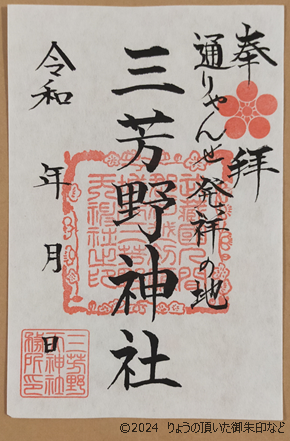 奉拝
通りゃんせ発祥の地
三芳野神社
令和 年 月 日
三芳野
天神社
務所印
©2024 りょうの頂いた御朱印など